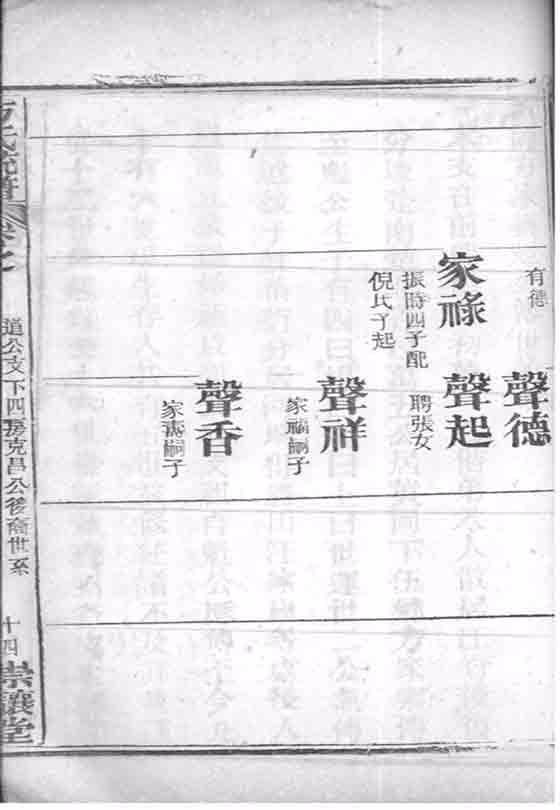 有德
聲德
家祿
振時四子配
倪氏子起
聲起
聘張女
聲祥
家福嗣子
聲香
家壽嗣子
方氏統譜
卷之
道公支下四房克昌公後裔世系
十四
崇讓堂